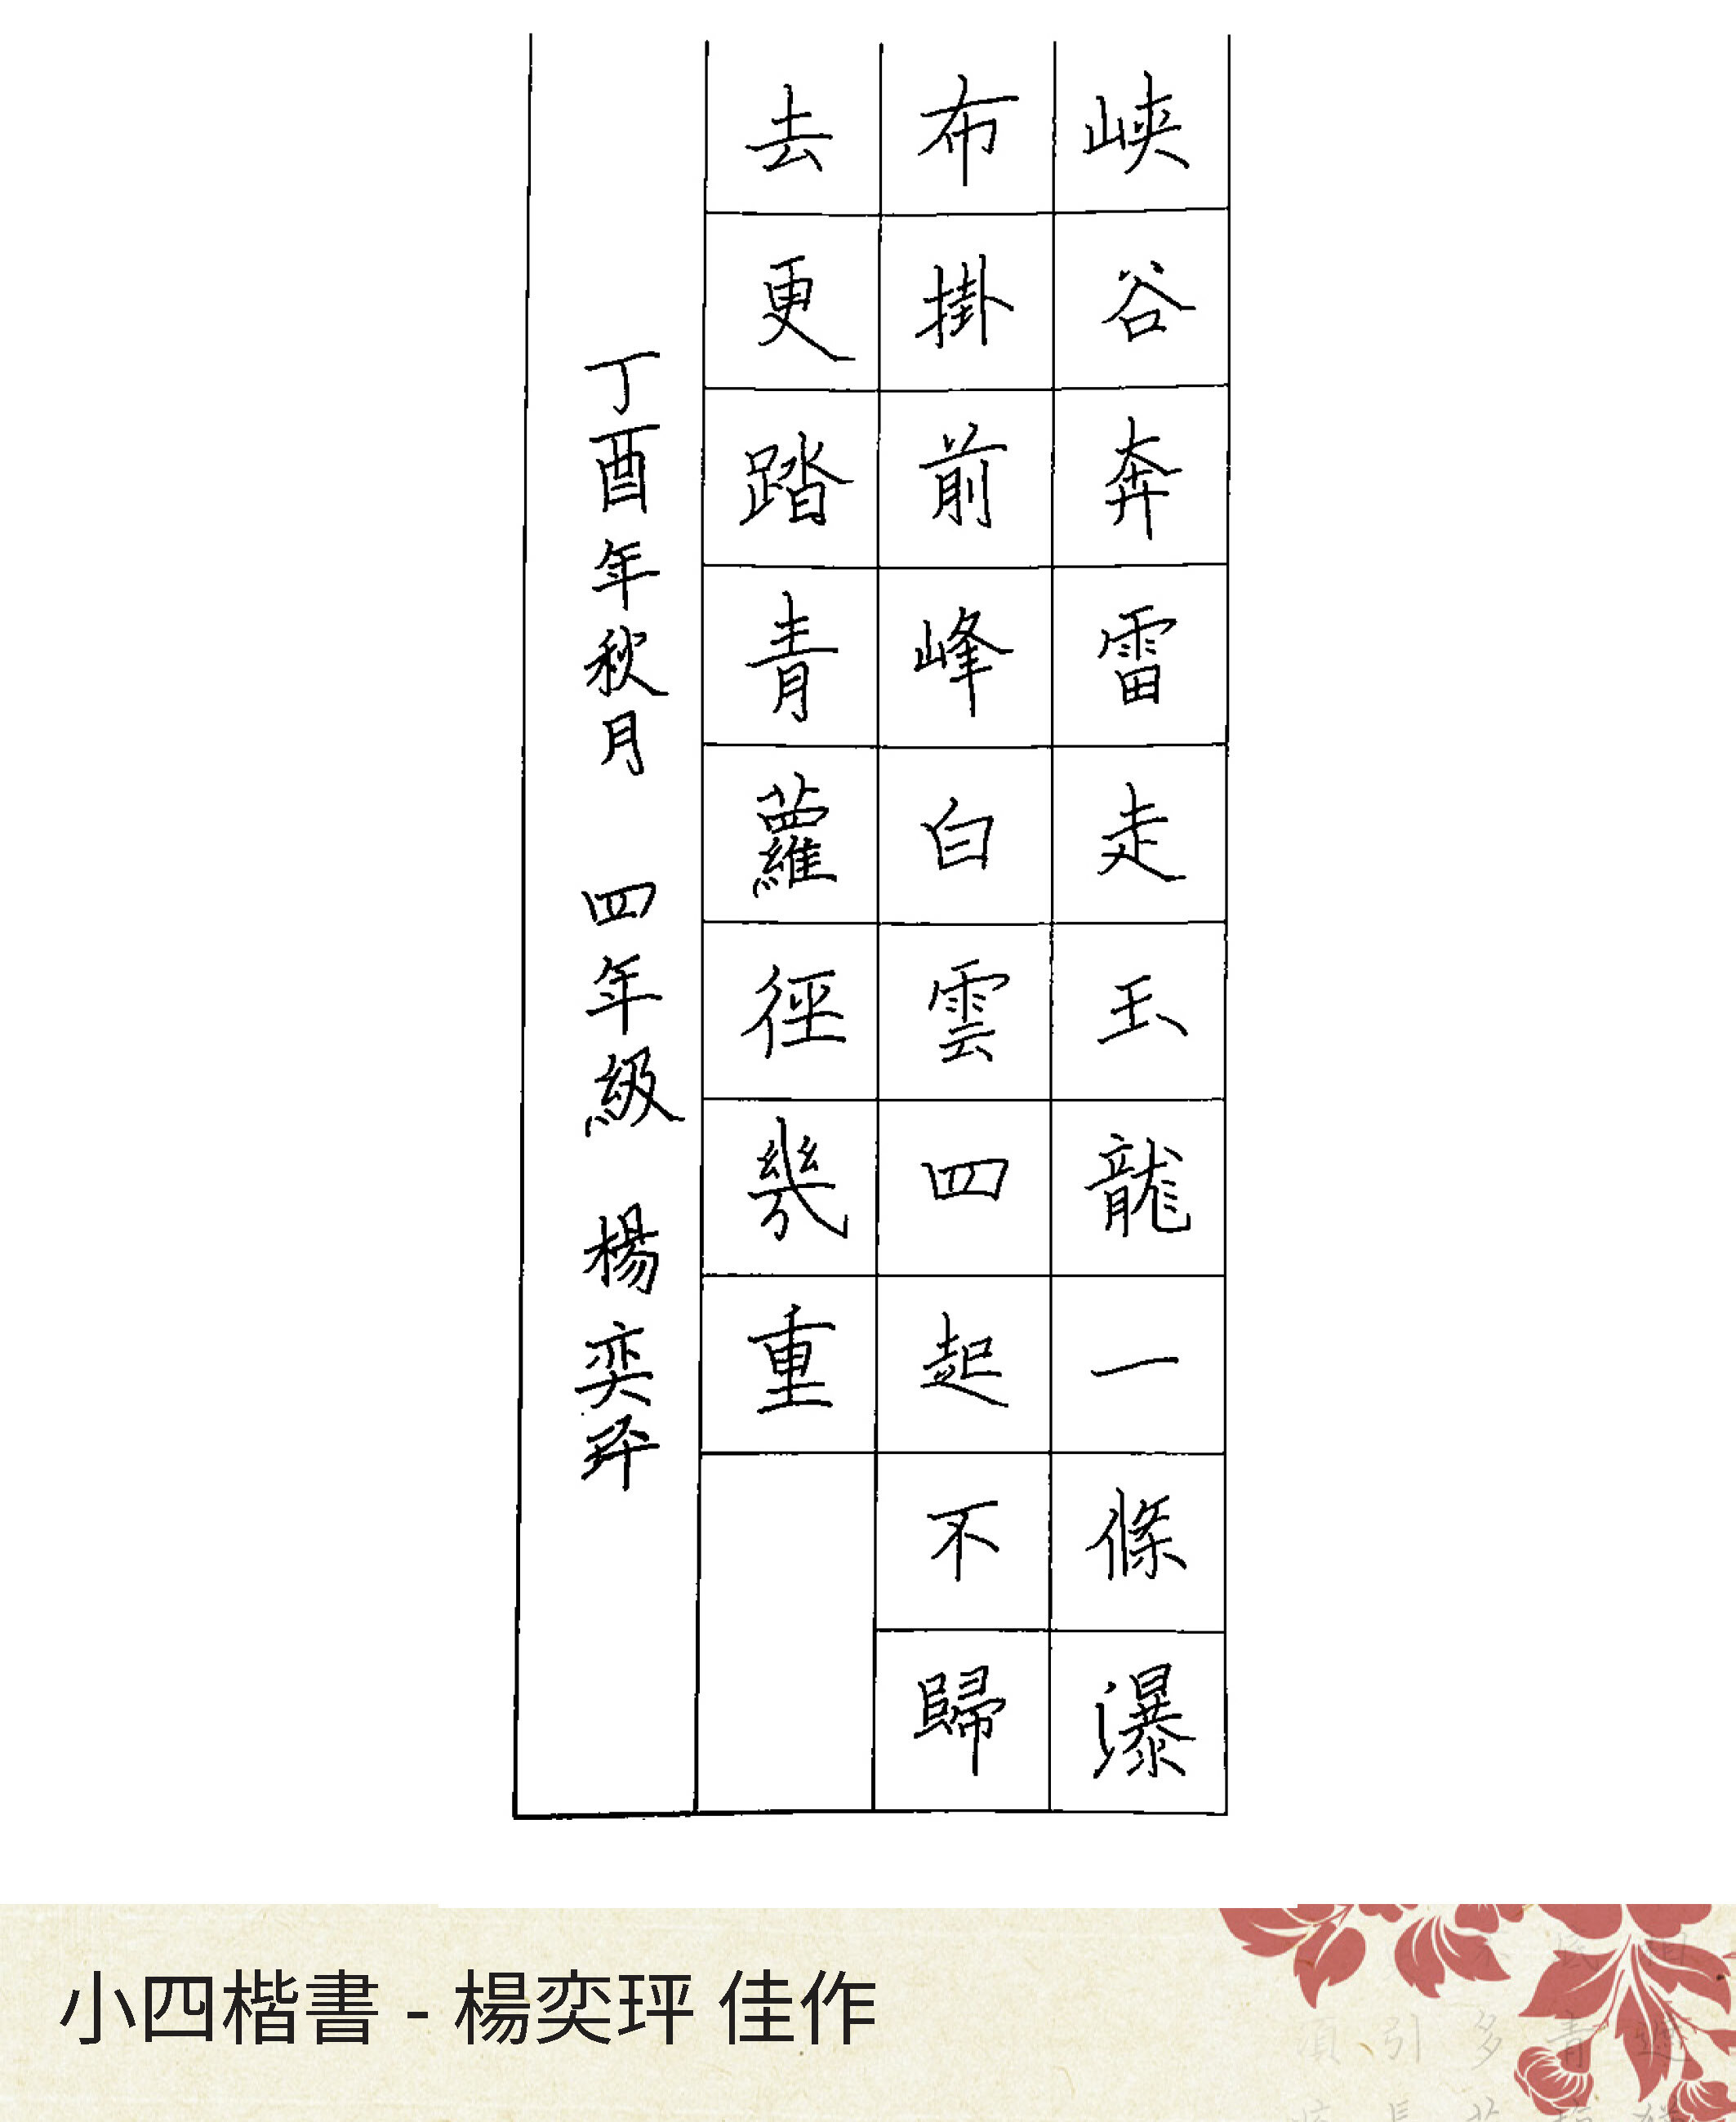 峽谷奔雷走玉龍一條瀑
布掛前峰白雲四起不歸
去更踏青蘿徑幾重
丁酉年秋月 四年級 楊奕玶
小四楷書 - 楊奕玶 佳作